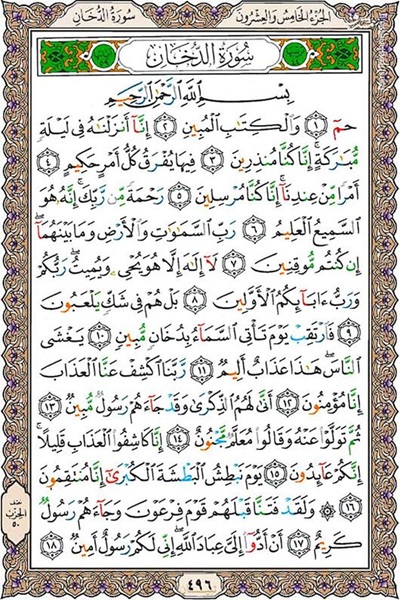 الجزء الخامس والعشرون
سورة الدخان
سُورَةُ الدُّخَانِ
بِسْمِ اللَّهِ الرَّحْمَٰنِ الرَّحِيمِ
حمٓ ۝١ وَالْكِتَابِ الْمُبِينِ ۝٢ إِنَّا أَنزَلْنَاهُ فِي لَيْلَةٍ
مُّبَارَكَةٍ إِنَّا كُنَّا مُنذِرِينَ ۝٣ فِيهَا يُفْرَقُ كُلُّ أَمْرٍ حَكِيمٍ ۝٤
أَمْرًا مِّنْ عِندِنَا إِنَّا كُنَّا مُرْسِلِينَ ۝٥ رَحْمَةً مِّن رَّبِّكَ إِنَّهُ هُوَ
السَّمِيعُ الْعَلِيمُ ۝٦ رَبِّ السَّمَاوَاتِ وَالْأَرْضِ وَمَا بَيْنَهُمَا
إِن كُنتُم مُّوقِنِينَ ۝٧ لَا إِلَٰهَ إِلَّا هُوَ يُحْيِي وَيُمِيتُ رَبُّكُمْ
وَرَبُّ آبَائِكُمُ الْأَوَّلِينَ ۝٨ بَلْ هُمْ فِي شَكٍّ يَلْعَبُونَ
۝٩ فَارْتَقِبْ يَوْمَ تَأْتِي السَّمَاءُ بِدُخَانٍ مُّبِينٍ ۝١٠ يَغْشَى
النَّاسَ هَٰذَا عَذَابٌ أَلِيمٌ ۝١١ رَّبَّنَا اكْشِفْ عَنَّا الْعَذَابَ
إِنَّا مُؤْمِنُونَ ۝١٢ أَنَّىٰ لَهُمُ الذِّكْرَىٰ وَقَدْ جَاءَهُمْ رَسُولٌ مُّبِينٌ ۝١٣
ثُمَّ تَوَلَّوْا عَنْهُ وَقَالُوا مُعَلَّمٌ مَّجْنُونٌ ۝١٤ إِنَّا كَاشِفُو الْعَذَابِ قَلِيلًا
إِنَّكُمْ عَائِدُونَ ۝١٥ يَوْمَ نَبْطِشُ الْبَطْشَةَ الْكُبْرَىٰ إِنَّا مُنتَقِمُونَ
۝١٦ ۞ وَلَقَدْ فَتَنَّا قَبْلَهُمْ قَوْمَ فِرْعَوْنَ وَجَاءَهُمْ رَسُولٌ
كَرِيمٌ ۝١٧ أَنْ أَدُّوا إِلَيَّ عِبَادَ اللَّهِ إِنِّي لَكُمْ رَسُولٌ أَمِينٌ ۝١٨
نصف
الحزب
٥٠
٤٩٦